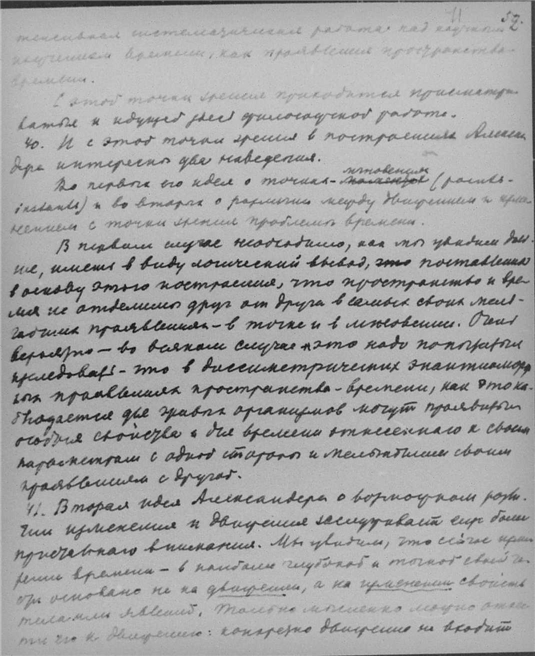 52.
тенсивная систематическая работа над научным
изучением времени, как проявления пространства-
времени.
С этой точки зрения приходится присматри-
ваться к идущей здесь философской работе.
40. И с этой точки зрения в построениях Алексан-
дра интересны два наведения.
Во первых его идея о точках-мгновениях (points-
instants) и во вторых о различии между движением и изме-
нением с точки зрения проблемы времени.
В первом случае необходимо, как мы увидим даль-
ше, иметь в виду логический вывод, это поставленная
в основу этого построения, что пространство и вре-
мя не отделимы друг от друга в самых своих мель-
чайших проявлениях – в точке и в мгновении. Очень
вероятно – во всяком случае это надо попытаться
исследовать – что в диссимметрических энантиоморф-
ных проявлениях пространства-времени, как это на-
блюдается для живых организмов могут проявиться
особые свойства и для времени отнесенного к своим
параметрам с одной стороны и мельчайшим своим
проявлениям с другой.
41. Вторая идея Александера о
изменения и движения заслуживает еще более
пристального внимания. Мы увидим, что сейчас изме-
рение времени – в наиболее глубокой и точной своей ча-
сти основано не на движении, а на изменении свойств
тела или явлений. Только мысленно можно отнес-
ти его к движению: конкретно движение не входит